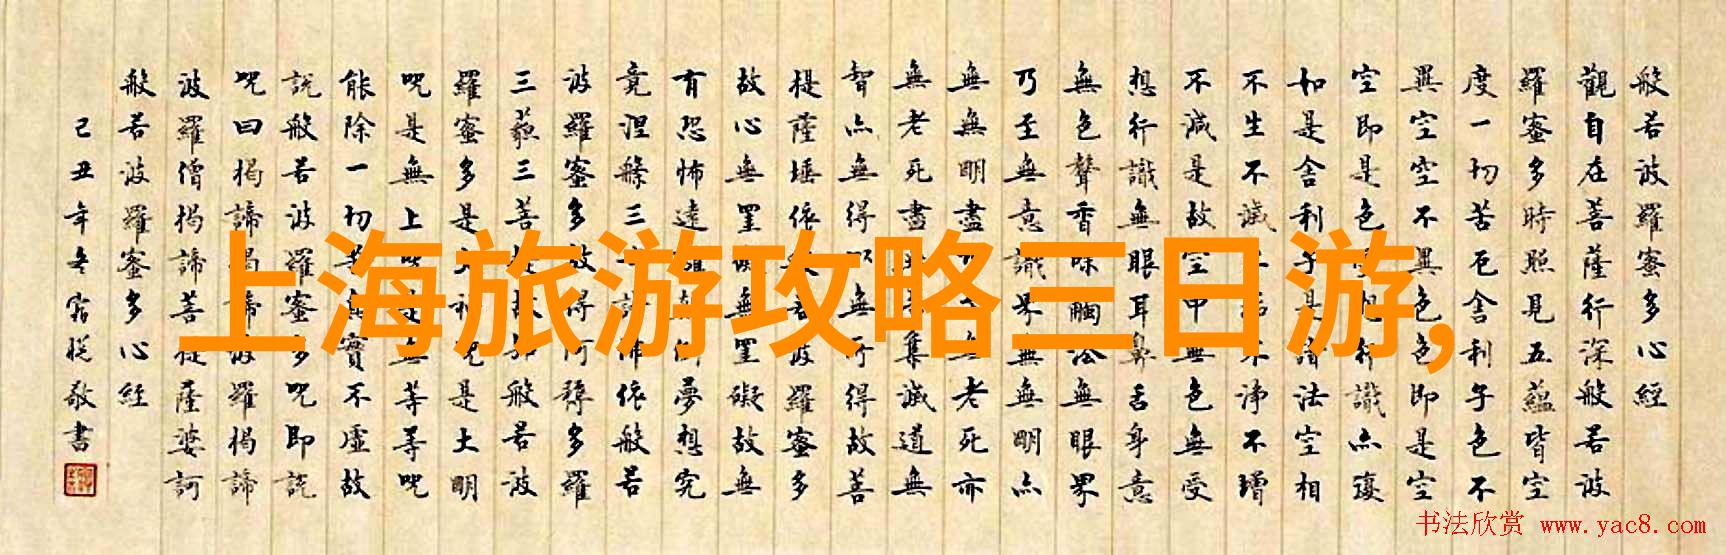 般若波羅蜜多心經
觀自在菩薩行深般若波
羅蜜多時照見五蘊皆空
度一切苦厄舍利子色不
異空空不異色色即是空
空即是色受想行識亦復
如是舍利子是諸法空相
不生不滅不垢不淨不增
不減是故空中無色無受
想行識無眼耳鼻舌身意
無色聲香味觸法無眼界
乃至無意識界無無明亦
無無明盡乃至無老死亦
無老死盡無苦集滅道無
智亦無得以無所得故菩
提薩埵依般若波羅蜜多
故心無罣礙無罣礙故無
有恐怖遠離顛倒夢想究
竟涅槃三世諸佛依般若
波羅蜜多故得阿耨多羅
三藐三菩提故知般若波
羅蜜多是大神呪是大明
呪是無上呪是無等等呪
能除一切苦真實不虛故
說般若波羅蜜多呪即說
呪曰揭諦揭諦波羅揭諦
波羅僧揭諦菩提薩婆訶
般若波羅蜜多心經
己丑年冬敬書
上海旅游攻略三日游,
书法欣赏 www.yac8.com